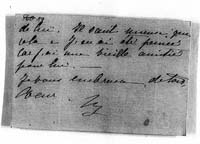 de lui. Il vaut mieux que
cela & j'en ai été
car j'ai une vieille amitié
pour lui. —
Je vous embrasse de tout
cœur.